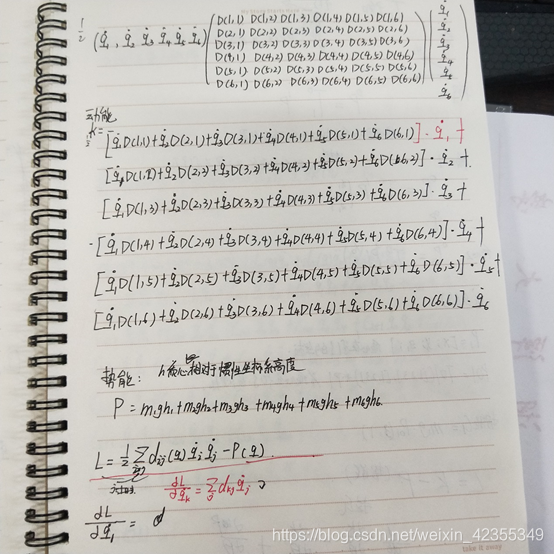 1/2 (q̇1, q̇2 q̇3 q̇4 q̇5 q̇6) ( D(1,1) D(1,2) D(1,3) D(1,4) D(1,5) D(1,6) ) ( q̇1 )
D(2,1) D(2,2) D(2,3) D(2,4) D(2,5) D(2,6) q̇2
D(3,1) D(3,2) D(3,3) D(3,4) D(3,5) D(3,6) q̇3
D(4,1) D(4,2) D(4,3) D(4,4) D(4,5) D(4,6) q̇4
D(5,1) D(5,2) D(5,3) D(5,4) D(5,5) D(5,6) q̇5
D(6,1) D(6,2) D(6,3) D(6,4) D(6,5) D(6,6) q̇6
动能
K= [q̇1D(1,1)+q̇2D(2,1)+q̇3D(3,1)+q̇4D(4,1)+q̇5D(5,1)+q̇6D(6,1)]·q̇1+
[q̇1D(1,2)+q̇2D(2,2)+q̇3D(3,2)+q̇4D(4,2)+q̇5D(5,2)+q̇6D(6,2)]·q̇2+
[q̇1D(1,3)+q̇2D(2,3)+q̇3D(3,3)+q̇4D(4,3)+q̇5D(5,3)+q̇6D(6,3)]·q̇3+
[q̇1D(1,4)+q̇2D(2,4)+q̇3D(3,4)+q̇4D(4,4)+q̇5D(5,4)+q̇6D(6,4)]·q̇4+
[q̇1D(1,5)+q̇2D(2,5)+q̇3D(3,5)+q̇4D(4,5)+q̇5D(5,5)+q̇6D(6,5)]·q̇5+
[q̇1D(1,6)+q̇2D(2,6)+q̇3D(3,6)+q̇4D(4,6)+q̇5D(5,6)+q̇6D(6,6)]·q̇6
势能: h质心相对于惯性坐标系高度
P = m1gh1+m2gh2+m3gh3+m4gh4+m5gh5+m6gh6
L = 1/2 Σij dij(q) q̇i q̇j - P(q)
dL/dq̇k = Σj dkj q̇j
dL/dq̇1 = d
https://blog.csdn.net/weixin_42355349